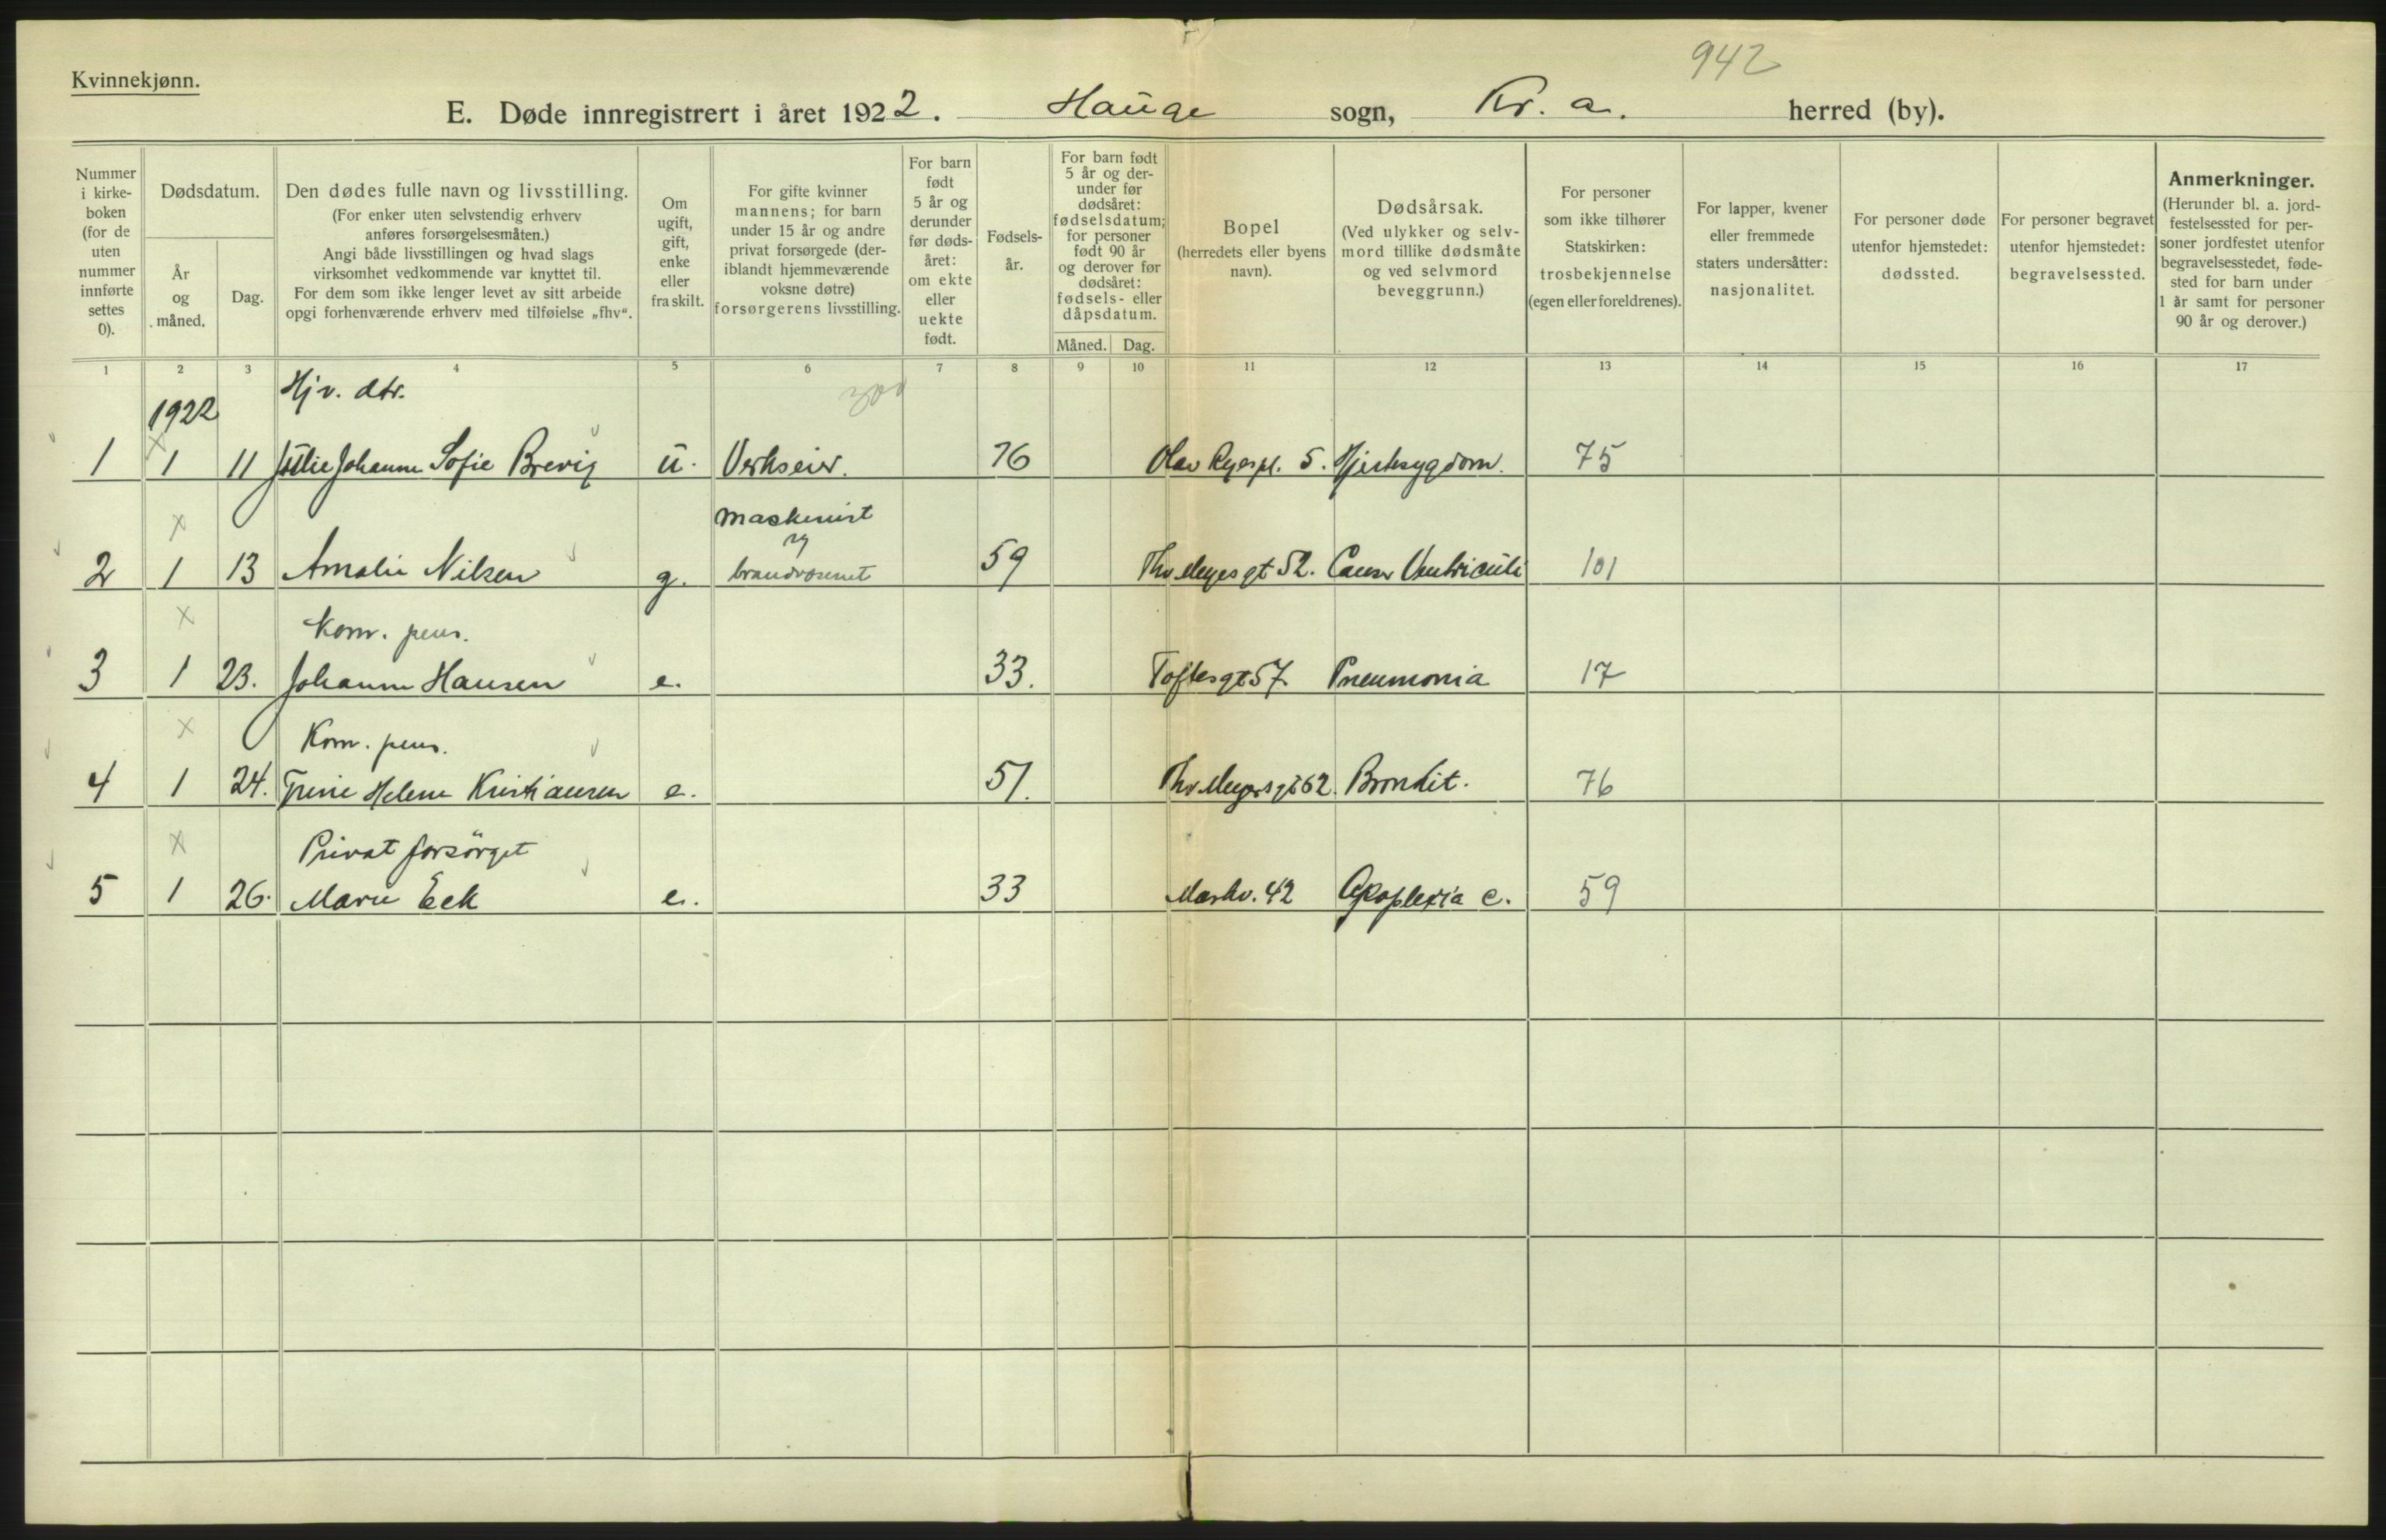 942
Kvinnekjønn.
E. Døde innregistrert i året 1922. Hauge sogn, Kr. a. herred (by).
Nummer i kirke-boken (for de uten nummer innførte settes 0).
Dødsdatum.
År og måned.
Dag.
Den dødes fulle navn og livsstilling.
(For enker uten selvstendig erhverv anføres forsørgelsesmåten.)
Angi både livsstillingen og hvad slags virksomhet vedkommende var knyttet til.
For dem som ikke lenger levet av sitt arbeide opgi forhenværende erhverv med tilføielse „fhv“.
Om ugift, gift, enke eller fraskilt.
For gifte kvinner mannens; for barn under 15 år og andre privat forsørgede (der-iblandt hjemmeværende voksne døtre) forsørgerens livsstilling.
For barn født 5 år og derunder før døds-året: om ekte eller uekte født.
Fødsels-år.
For barn født 5 år og der-under før dødsåret: fødselsdatum; for personer født 90 år og derover før dødsåret: fødsels- eller dåpsdatum.
Måned. Dag.
Bopel (herredets eller byens navn).
Dødsårsak.
(Ved ulykker og selv-mord tillike dødsmåte og ved selvmord beveggrunn.)
For personer som ikke tilhører Statskirken: trosbekjennelse (egen eller foreldrenes).
For lapper, kvener eller fremmede staters undersåtter: nasjonalitet.
For personer døde utenfor hjemstedet: dødssted.
For personer begravet utenfor hjemstedet: begravelsessted.
Anmerkninger.
(Herunder bl. a. jord-festelsessted for per-soner jordfestet utenfor begravelsesstedet, føde-sted for barn under 1 år samt for personer 90 år og derover.)
1 2 3 4 5 6 7 8 9 10 11 12 13 14 15 16 17
Hjv. dtr. 300
1922
1 1 11 Julie Johanne Sofie Brevig u. Verkseier. 76 Olav Ryes pl. 5. Hjertesygdom. 75
Maskinist
v
2 1 13 Amalie Nilsen g. brandvæsenet 59 Thv Meyes gt 52. Cancer Ventriculi 101
Kom. pens.
3 1 23. Johanne Hansen e. 33. Toftesgt 57. Pneumonia 17
Kom. pens.
4 1 24. Trine Helene Kristiansen e. 51. Thv Meyers gt 62. Bronkit. 76
Privat forsörget
5 1 26. Marie Eek e. 33 Markv. 42 Apoplexia c. 59